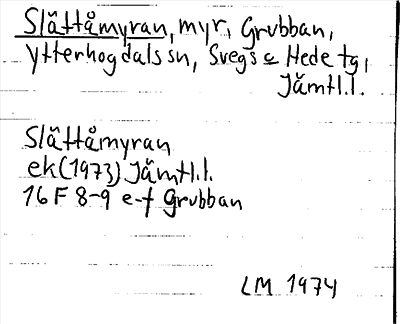 Slåttåmyran, myr, Grubban,
Ytterhogdals sn, Svegs o Hede tg,
Jämtl.l.
Slåttåmyran
ek (1973) Jämtl.l.
16 F 8-9 e-f Grubban
LM 1974